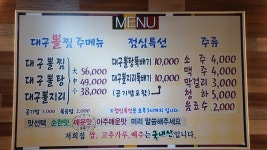 MENU
대구뽈찜 주메뉴
대구뽈찜
대구뽈탕
대구뽈지리
대 56,000
중 49,000
소 38,000
공기밥 1,000 볶음밥 2,000
점심특선
대구뽈탕뚝배기 10,000
대구뽈지리뚝배기 10,000
(공기밥포함)
주류
소주 4,000
맥주 4,000
막걸리 3,000
청하 5,000
음료수 2,000
맛선택 순한맛 매운맛 아주매운맛 미리 말씀해주세요
저희집 쌀, 고추가루, 배추는 국내산입니다